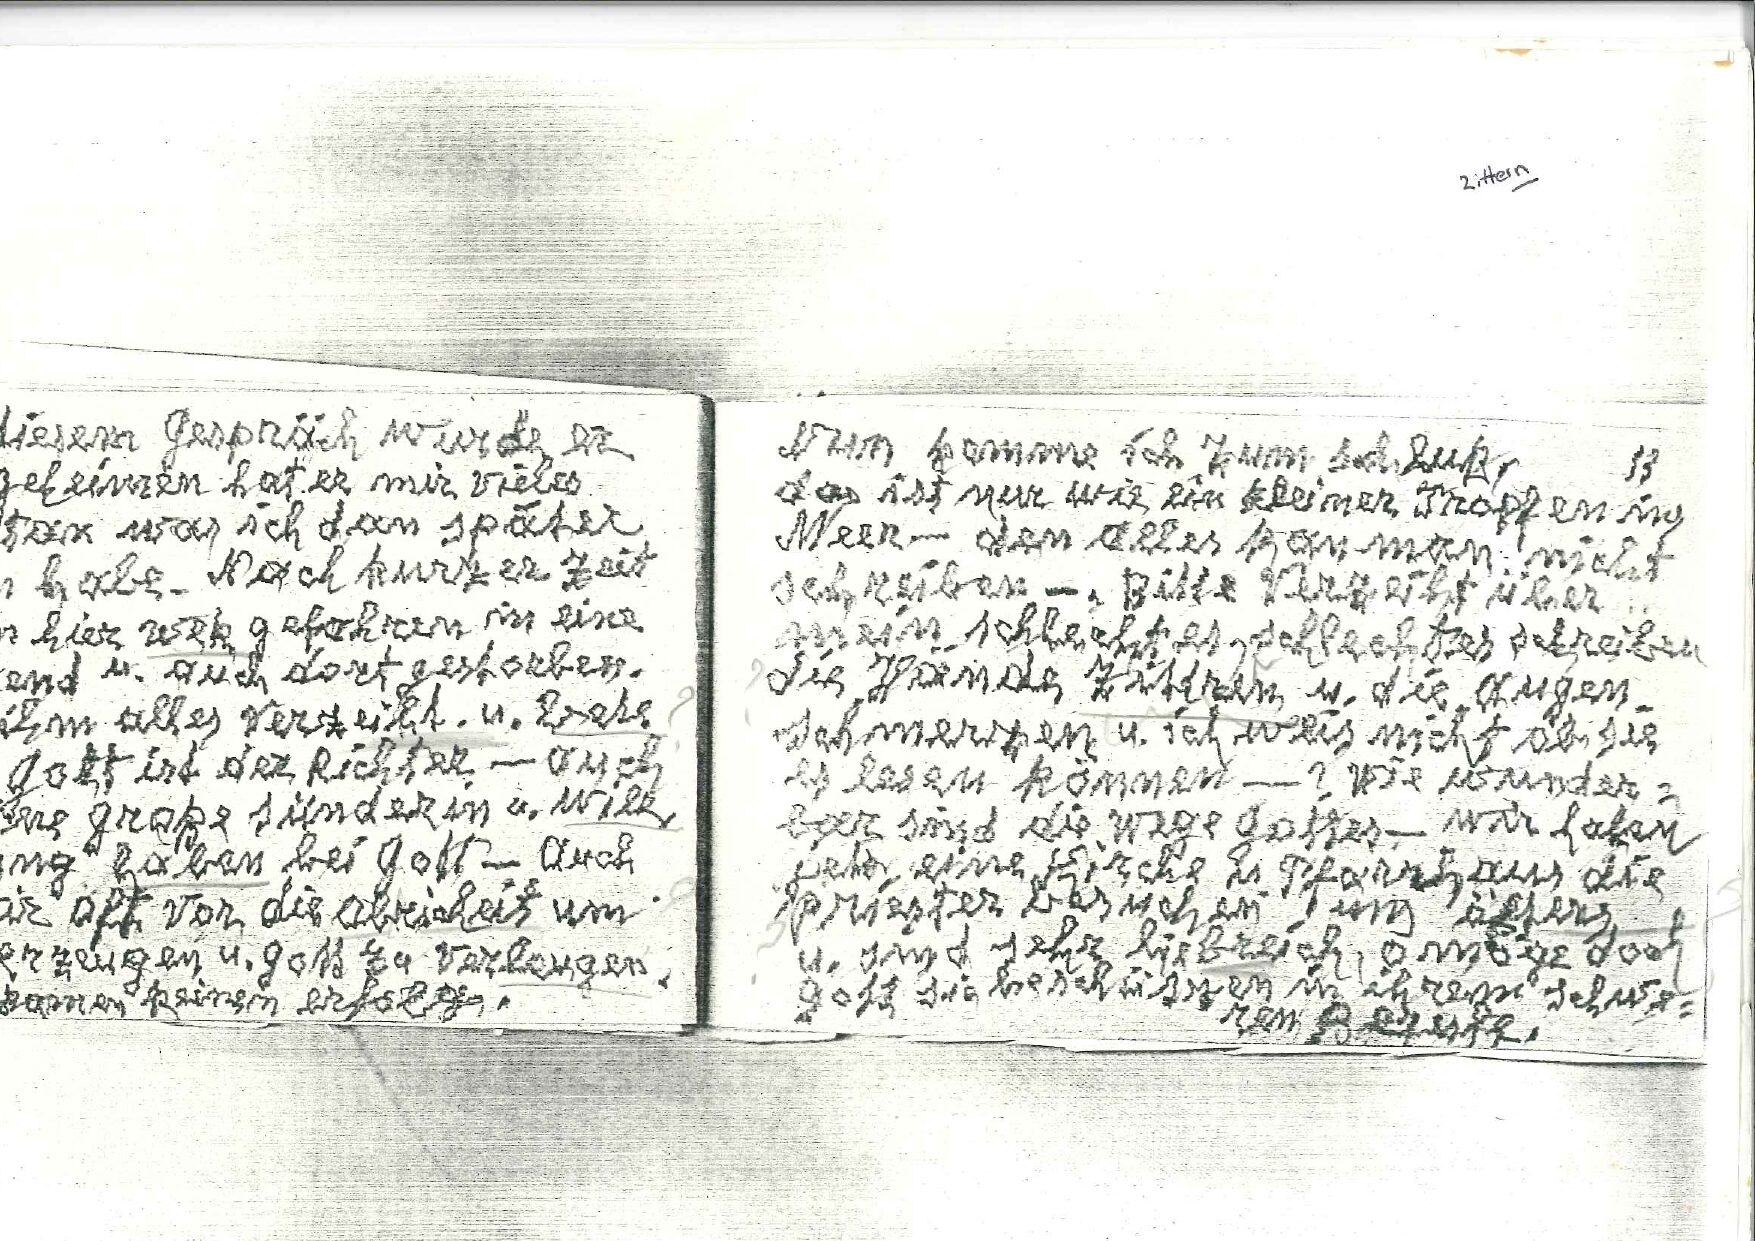 Zittern
diesem Gespräch wurde er
geheimen hat er mir vieles
was ich dan später
habe. Nach kurzer Zeit
hier wek gefahren in eine
u. auch dort gestorben.
ihm alles Verzeiht. u.
Gott ist der Richter — Auch
große sünderin u. Will
haben bei Gott — Auch
oft Vor die um
u. Gott zu Verleugen.
keinen erfolg.
13
Nun komme ich zum schluß,
das ist nur wie ein kleiner Tropfen ins
Meer — den alles kan man nicht
schreiben —, Bitte Verzeiht über
mein schlechtes, schlechtes schreiben
die Hände Zittren u. die Augen
schmerzen u. ich weis nicht ob sie
es lesen können — ? Wie wunder=
bar sind die Wege Gottes — wir haben
eine Kirche u. Pfarrhaus die
Priester besuchen uns öfters
u. sind sehr liebreich, o möge doch
Gott sie beschützen in ihrem schwe=
ren Berufe.